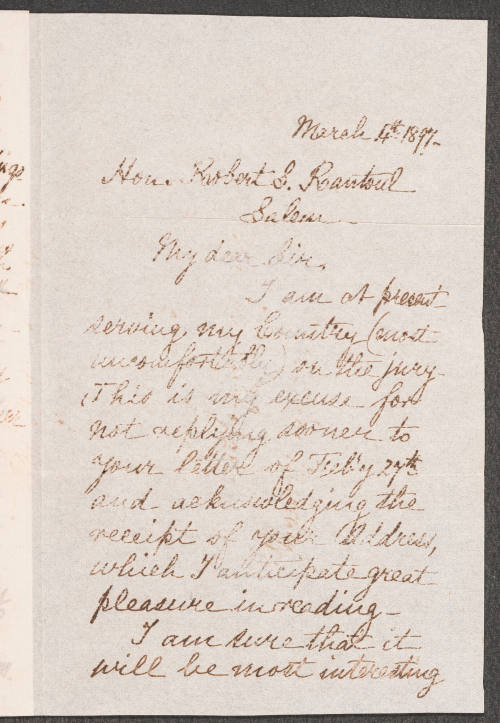 March 4th 1897-
Hon. Robert S. Rantoul
Salem-
My dear Sir,
I am at present
serving my Country (most
uncomfortably) on the jury
(This is my excuse for
not replying sooner to
your letter of Feb'y 27th
and acknowledging the
receipt of your Address,
which I anticipate great
pleasure in reading-
I am sure that it
will be most interesting